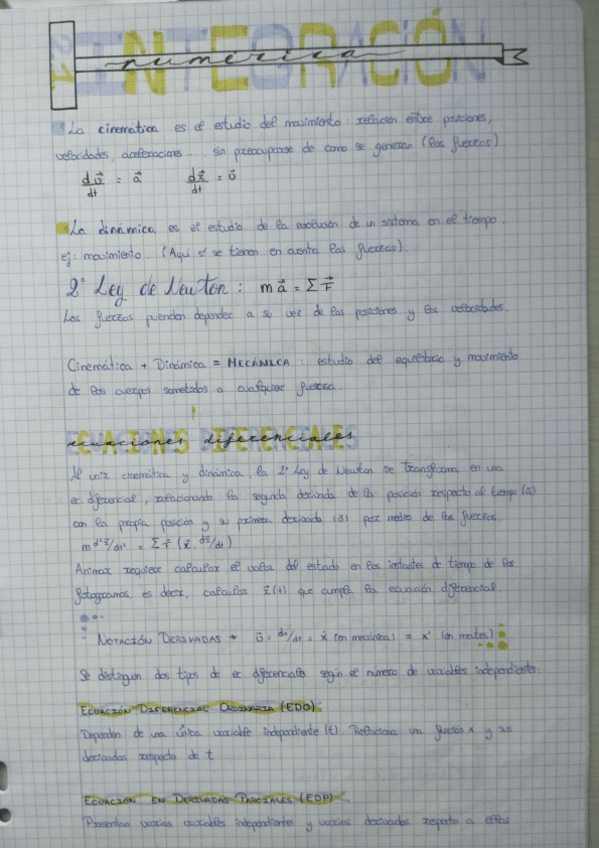 2.1.
INTEGRACIÓN
numérica
La cinemática es el estudio del movimiento: relación entre posiciones,
velocidades, aceleraciones... sin preocuparse de como se generan (las fuerzas)
dv⃗/dt = a⃗ dx⃗/dt = v⃗
La dinámica es el estudio de la evolución de un sistema en el tiempo
ej: movimiento. (Aquí sí se tienen en cuenta las fuerzas)
2ª Ley de Newton: m a⃗ = Σ F⃗
Las fuerzas pueden depender a su vez de las posiciones y las velocidades.
Cinemática + Dinámica = MECÁNICA: estudio del equilibrio y movimiento
de los cuerpos sometidos a cualquier fuerza.
ECUACIONES DIFERENCIALES
ecuaciones diferenciales
Al unir cinemática y dinámica, la 2ª Ley de Newton se transforma en una
ec. diferencial, relacionando la segunda derivada de la posición respecto al tiempo (a)
con la propia posición y su primera derivada (v) por medio de las fuerzas.
m d²x⃗/dt² = Σ F⃗ (x⃗, dx⃗/dt)
Animar requiere calcular el valor del estado en los instantes de tiempo de los
fotogramas, es decir, calcular x⃗(t) que cumpla la ecuación diferencial.
NOTACIÓN DERIVADAS → v⃗ = dx/dt = ẋ (en mecánica) = x' (en mates)
Se distinguen dos tipos de ec diferenciales según el número de variables independientes:
ECUACIÓN DIFERENCIAL ORDINARIA (EDO)
Dependen de una única variable independiente (t). Relaciona una función x y sus
derivadas respecto de t
ECUACIÓN EN DERIVADAS PARCIALES (EDP)
Presentan varias variables independientes y varias derivadas respecto a ellas